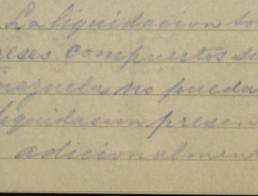 La liquidacion to
reses compuestos su
nezuela, no pueda
liquidacion presen
adicionalmen